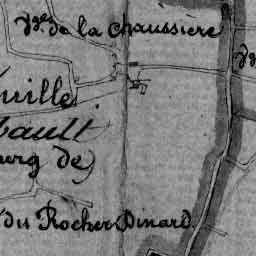 Vge. de la Chaussière
uille
bault
urg de
du Rocher Dinard.